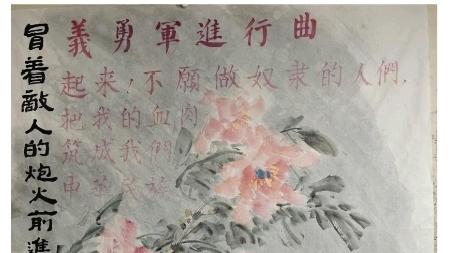 義勇軍進行曲
起来！不願做奴隶的人們．
把我的血肉
筑成我們
中華民族
冒着敵人的炮火前進